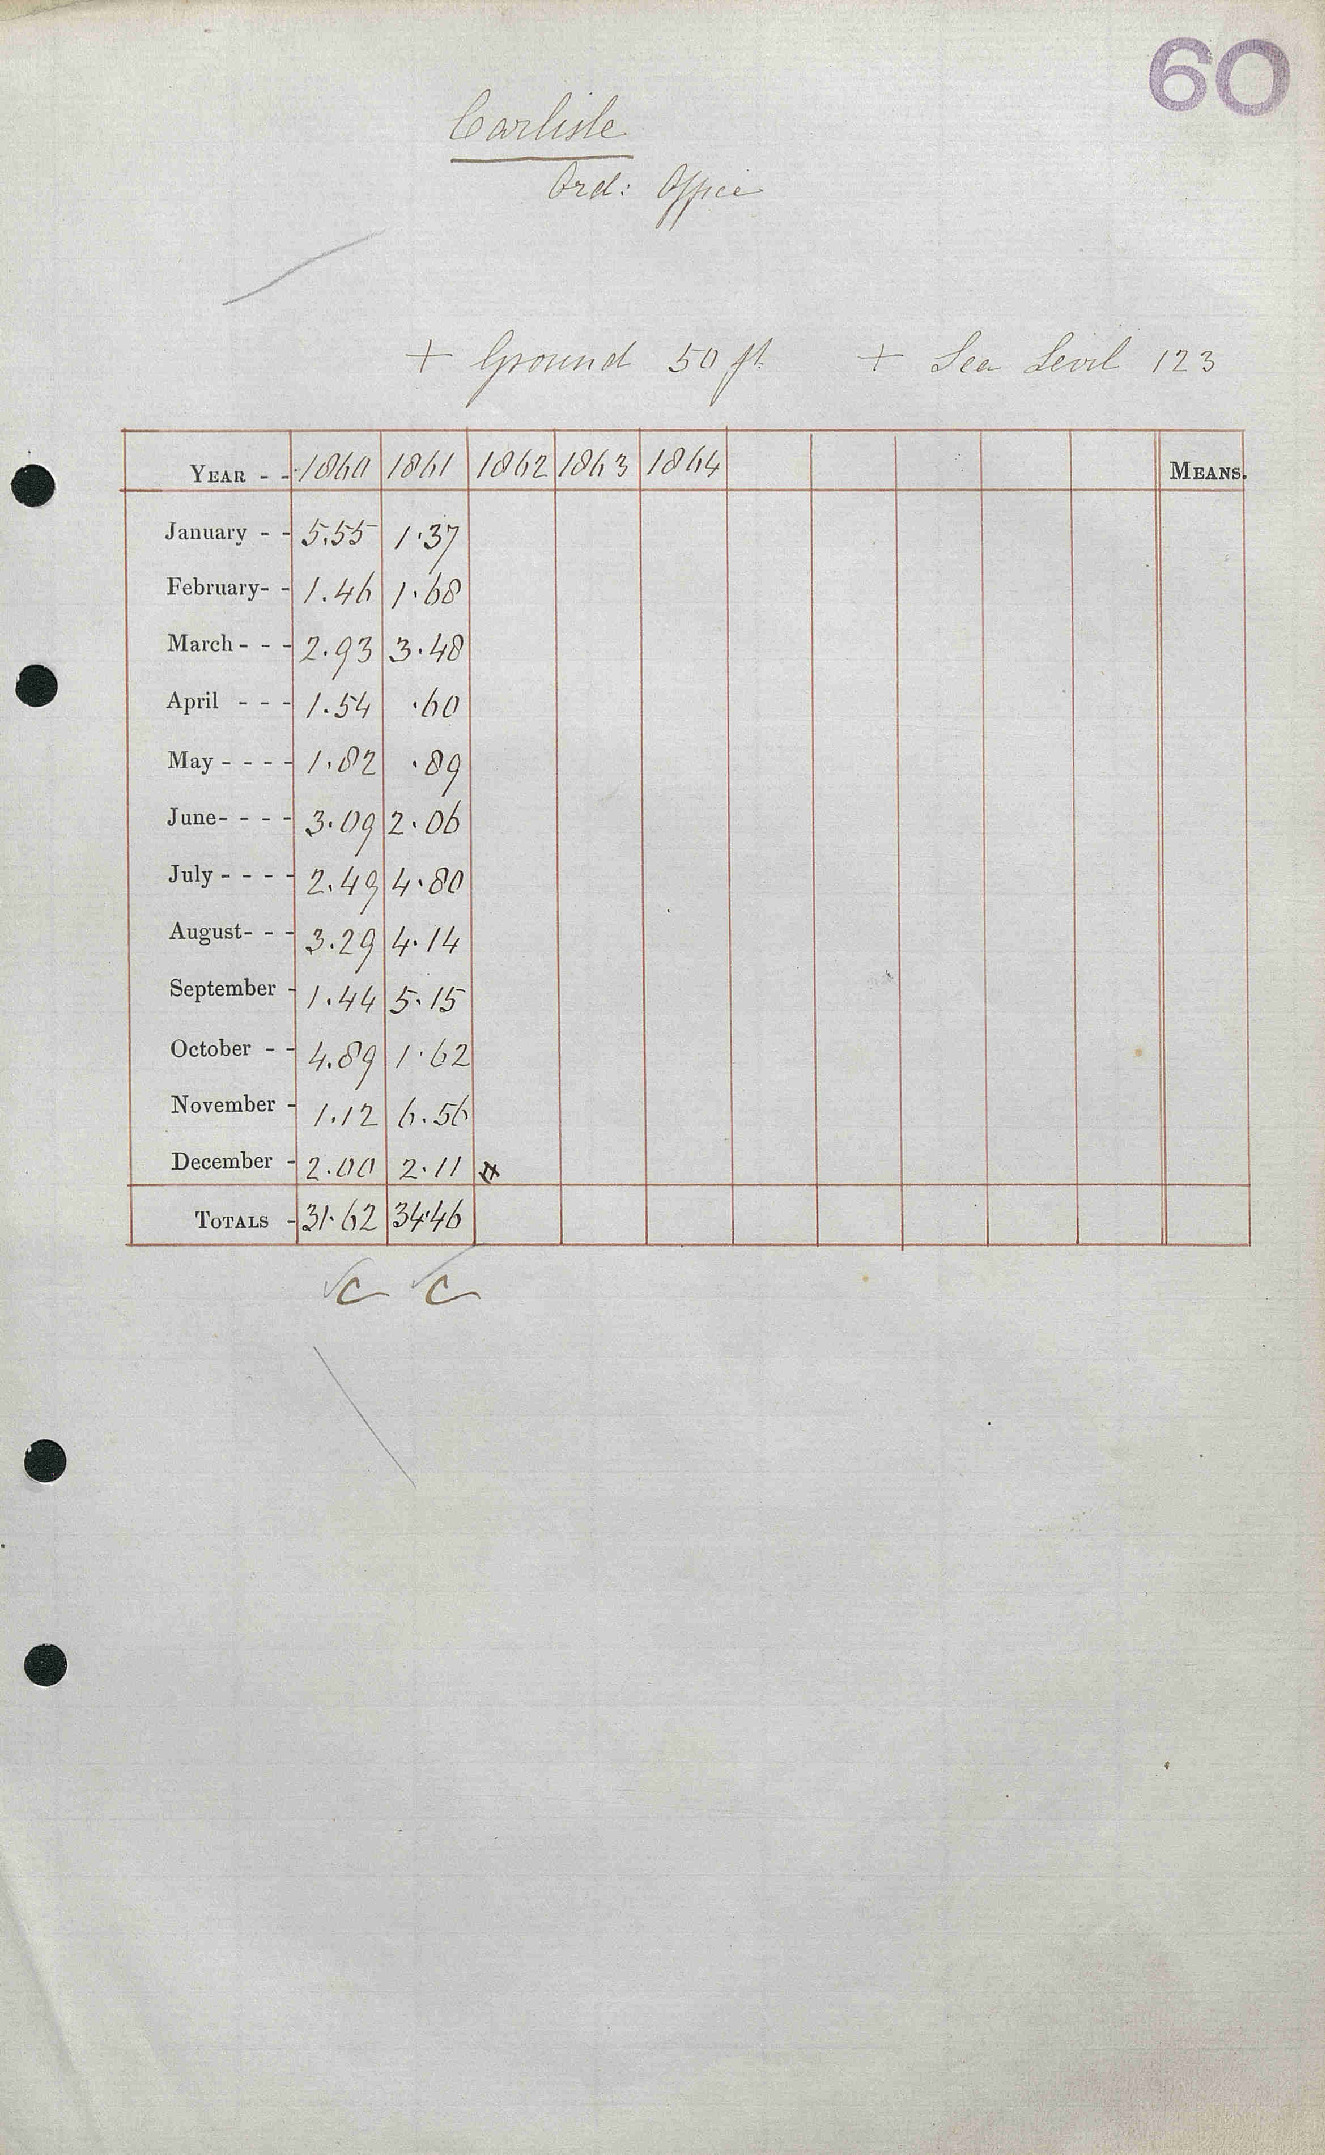 60
Carlisle
Ord: Office
+ Ground 50 ft + Sea Level 123
YEAR - - 1860 1861 1862 1863 1864 MEANS.
January - - 5.55 1.37
February- - 1.46 1.68
March - - - 2.93 3.48
April - - - 1.54 .60
May - - - - 1.82 .89
June- - - - 3.09 2.06
July - - - - 2.49 4.80
August- - - 3.29 4.14
September - 1.44 5.15
October - - 4.89 1.62
November - 1.12 6.56
December - 2.00 2.11
TOTALS - 31.62 34.46
C C